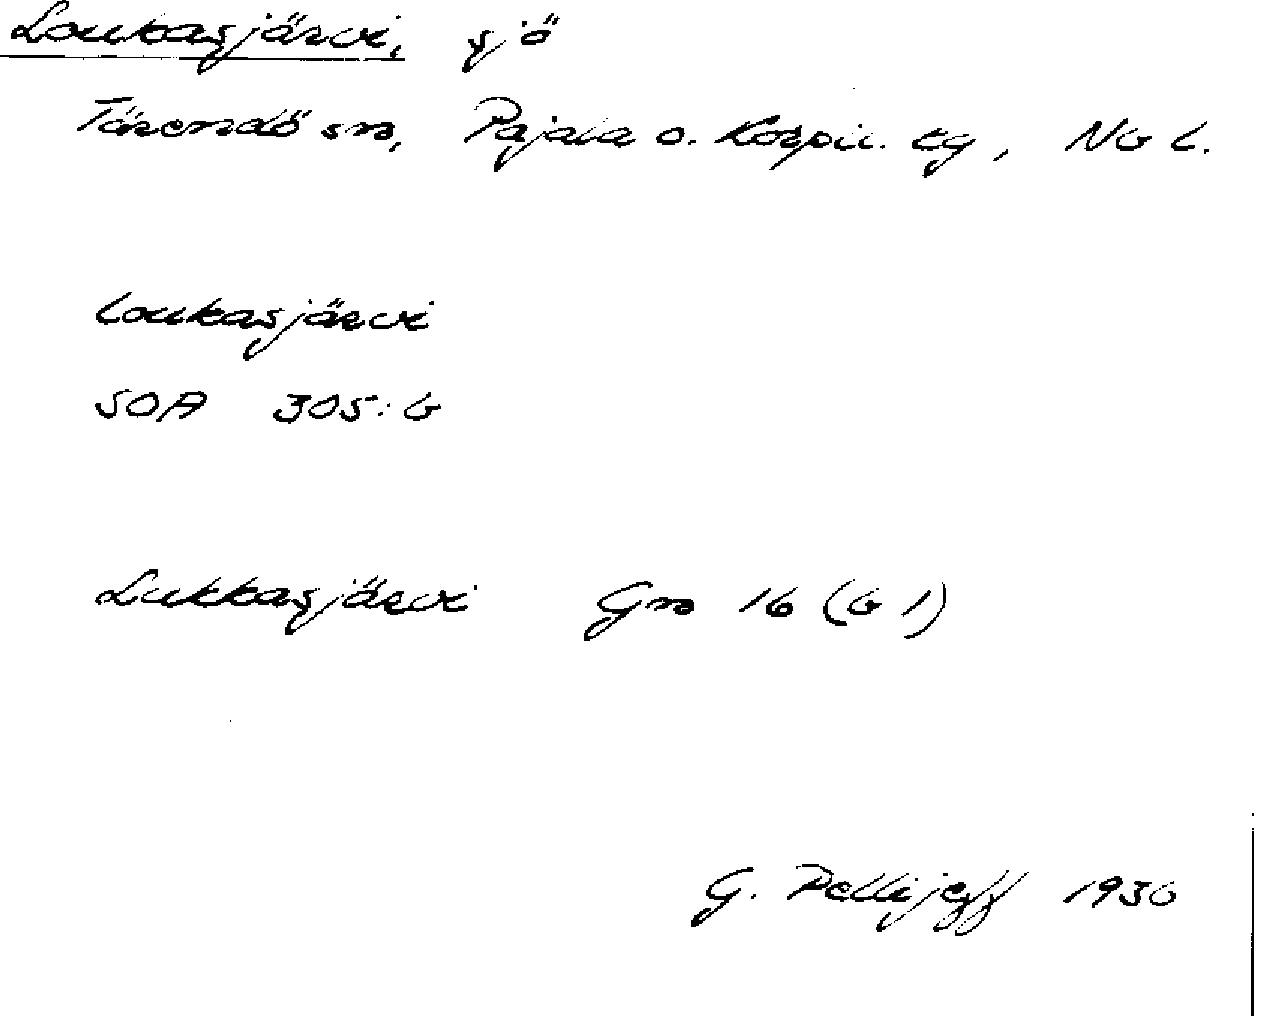 Loukasjärvi, sjö
Tärendö sn, Pajala o. Korpil. tg, Nb l.
Loukasjärvi
SOA 305:6
Lukkasjärvi Gm 16 (G 1)
G. Pellijeff 1936